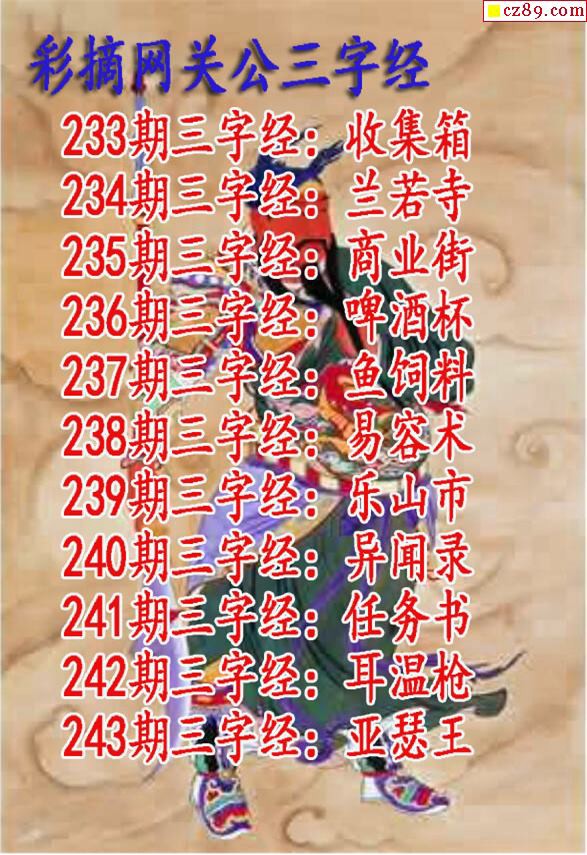 cz89.com
彩摘网关公三字经
233期三字经：收集箱
234期三字经：兰若寺
235期三字经：商业街
236期三字经：啤酒杯
237期三字经：鱼饲料
238期三字经：易容术
239期三字经：乐山市
240期三字经：异闻录
241期三字经：任务书
242期三字经：耳温枪
243期三字经：亚瑟王